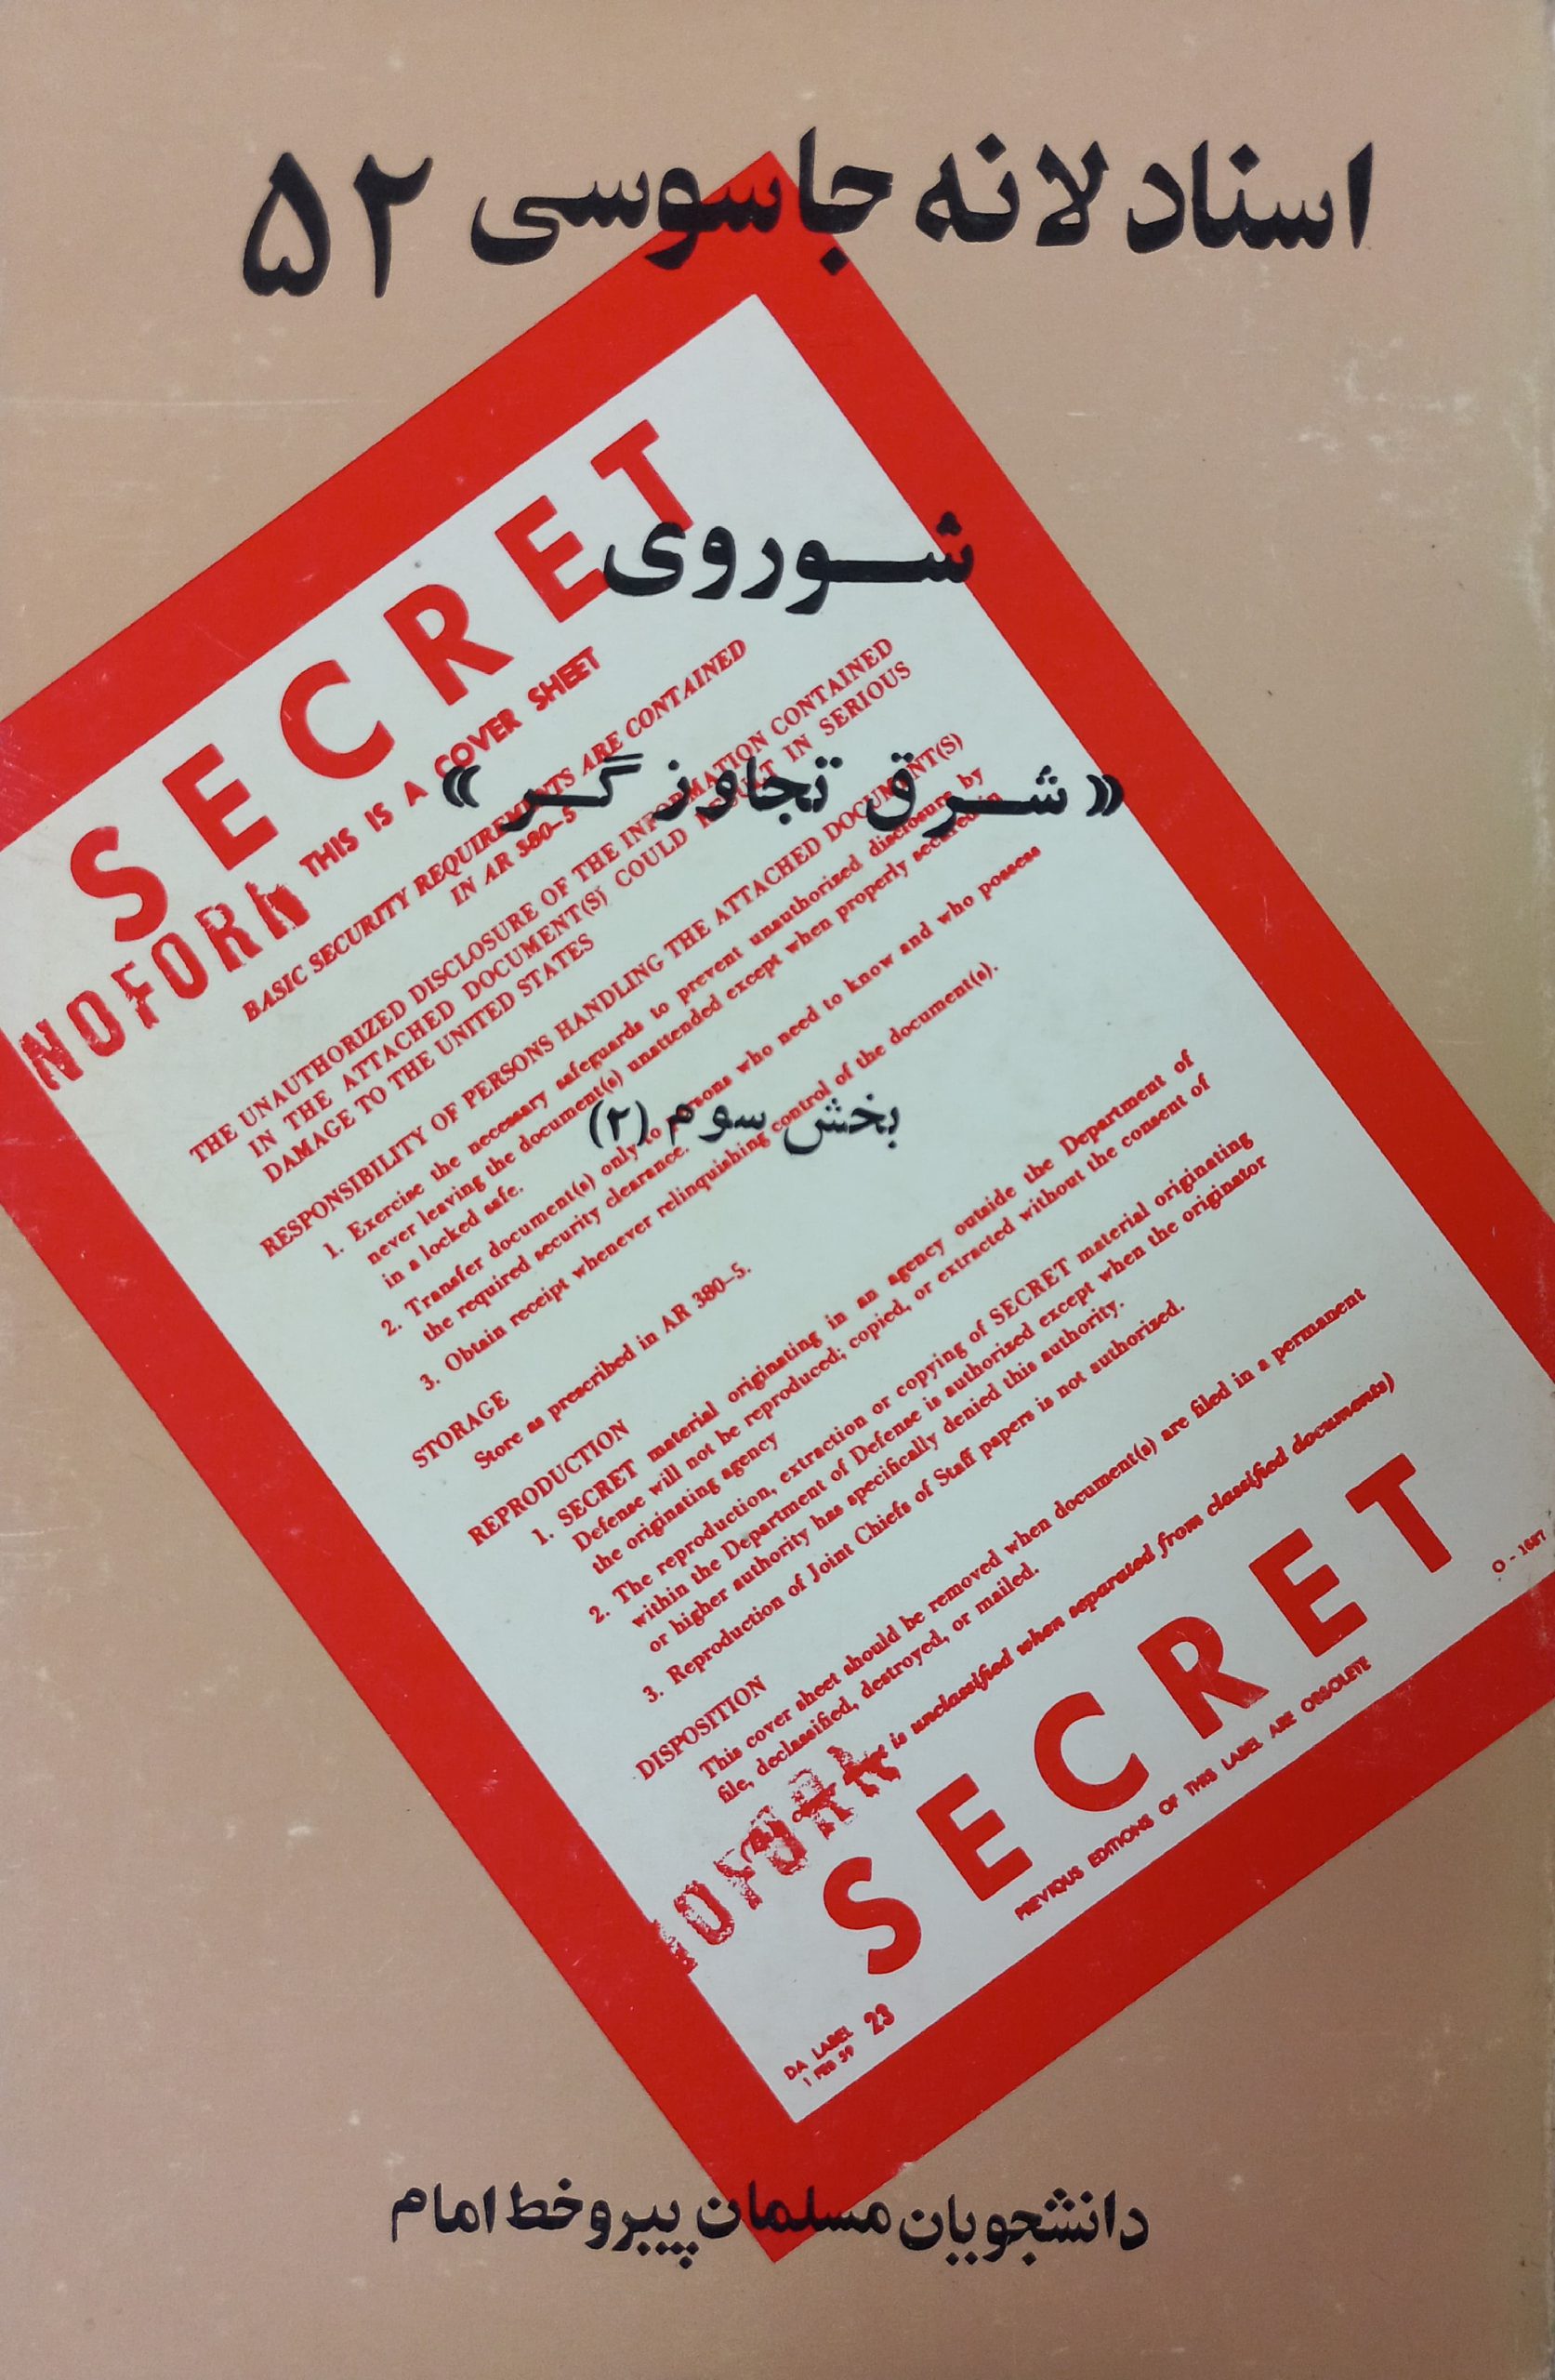 اسناد لانه جاسوسی ۵۲
SECRET
شوروی
NOFORN
THIS IS A COVER SHEET
BASIC SECURITY REQUIREMENTS ARE CONTAINED
IN AR 380-5
«شرق تجاوزگر»
THE UNAUTHORIZED DISCLOSURE OF THE INFORMATION CONTAINED
IN THE ATTACHED DOCUMENT(S) COULD RESULT IN SERIOUS
DAMAGE TO THE UNITED STATES
RESPONSIBILITY OF PERSONS HANDLING THE ATTACHED DOCUMENT(S)
1. Exercise the necessary safeguards to prevent unauthorized disclosure by
never leaving the document(s) unattended except when properly secured in
in a locked safe.
بخش سوم (۲)
2. Transfer document(s) only to persons who need to know and who possess
the required security clearance.
3. Obtain receipt whenever relinquishing control of the document(s).
STORAGE
Store as prescribed in AR 380-5.
REPRODUCTION
1. SECRET material originating in an agency outside the Department of
Defense will not be reproduced; copied, or extracted without the consent of
the originating agency
2. The reproduction, extraction or copying of SECRET material originating
within the Department of Defense is authorized except when the originator
or higher authority has specifically denied this authority.
3. Reproduction of Joint Chiefs of Staff papers is not authorized.
DISPOSITION
This cover sheet should be removed when document(s) are filed in a permanent
file, declassified, destroyed, or mailed.
is unclassified when separated from classified documents)
NOFORN
SECRET
O-1687
PREVIOUS EDITIONS OF THIS LABEL ARE OBSOLETE
DA LABEL 23
1 FEB 59
دانشجویان مسلمان پیرو خط امام